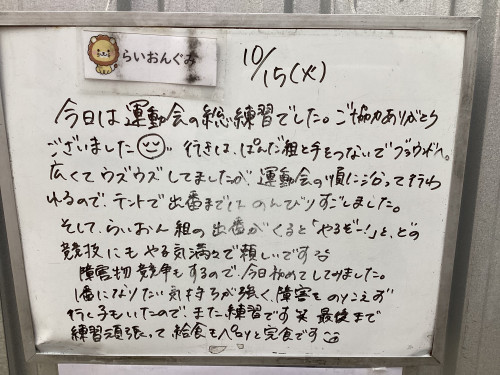 らいおんぐみ
10/15(火)
今日は運動会の総練習でした。ご協力ありがとう
ございました 行きは、ぱんだ組と手をつないでグラウンドへ。
広くてウズウズしてましたが、運動会の順に沿って行わ
れるので、テントで出番までは のんびりすごしました。
そして、らいおん組の出番がくると「やるぞー!」と、どの
競技にもやる気満々で頼しいです
障害物競争もするので、今日初めてしてみました。
1番になりたい気持ちが強く、障害をのりこえず
行く子もいたので、また練習です 笑 最後まで
練習頑張って、給食もペロリと完食です